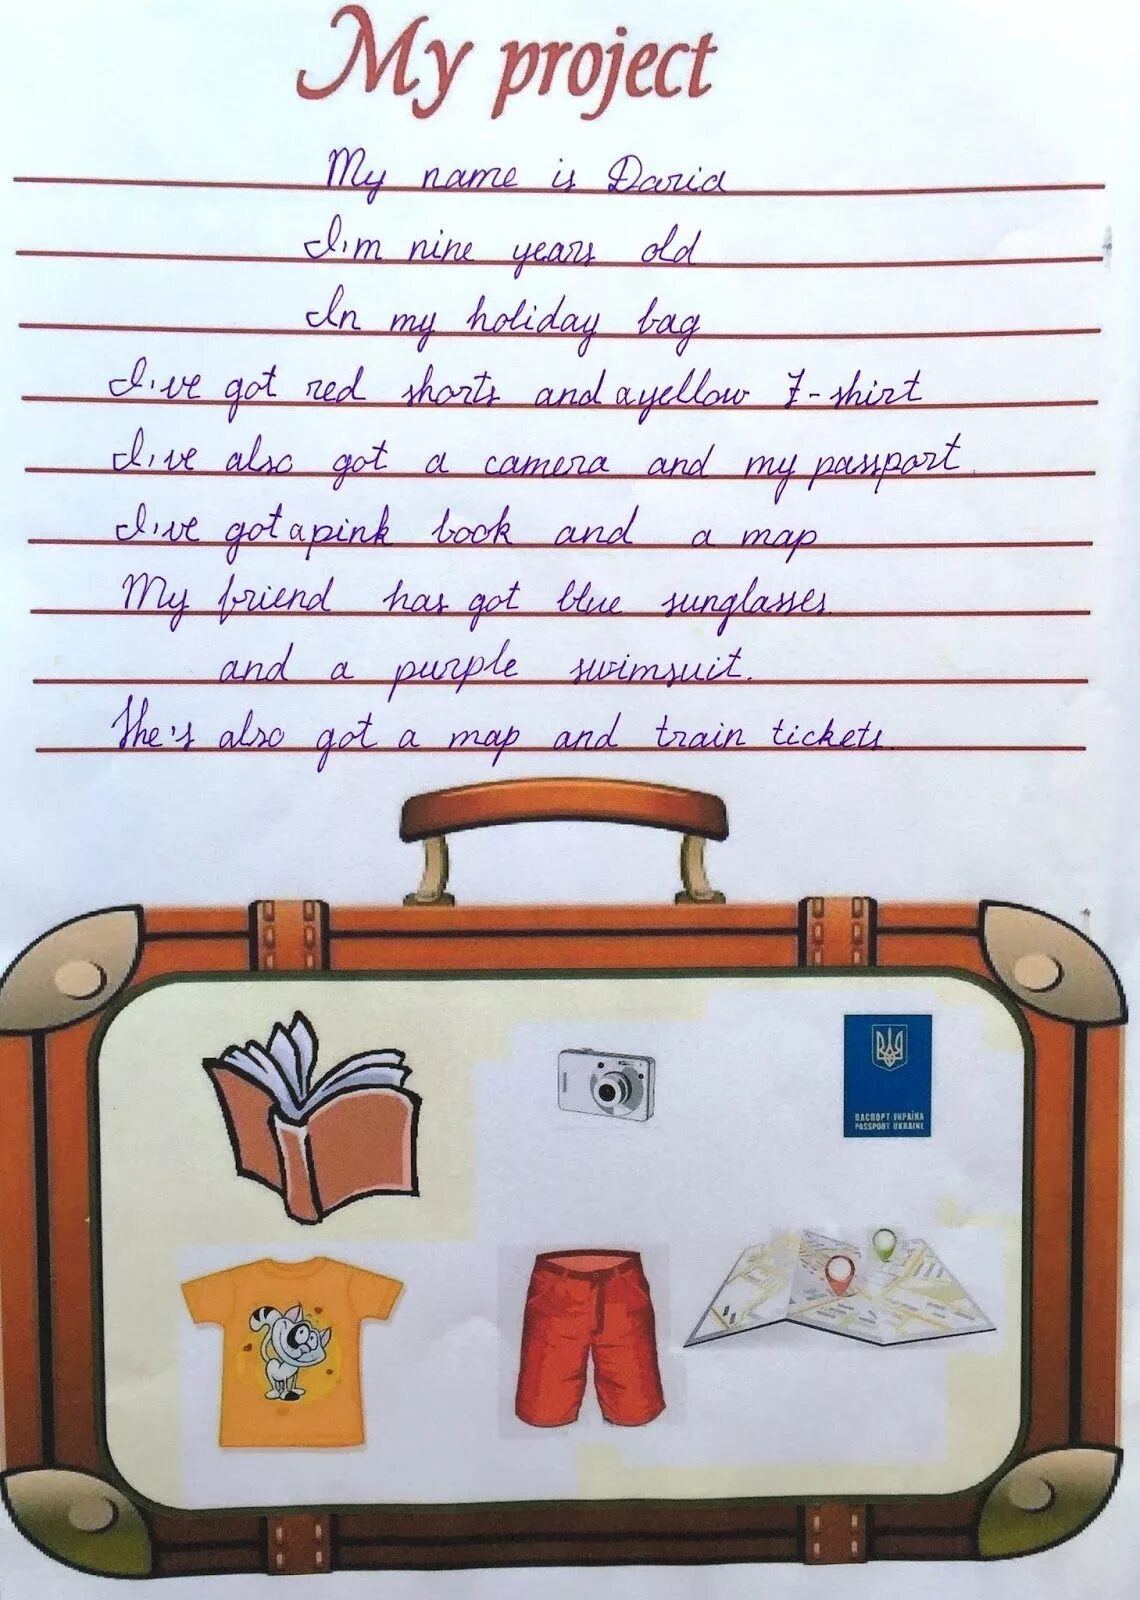 My project
My name is Daria
I'm nine years old
In my holiday bag
I've got red shorts and a yellow T-shirt
I've also got a camera and my passport.
I've got a pink book and a map
My friend has got blue sunglasses
and a purple swimsuit.
She's also got a map and train tickets.
ПАСПОРТ УКРАЇНА
PASSPORT UKRAINE